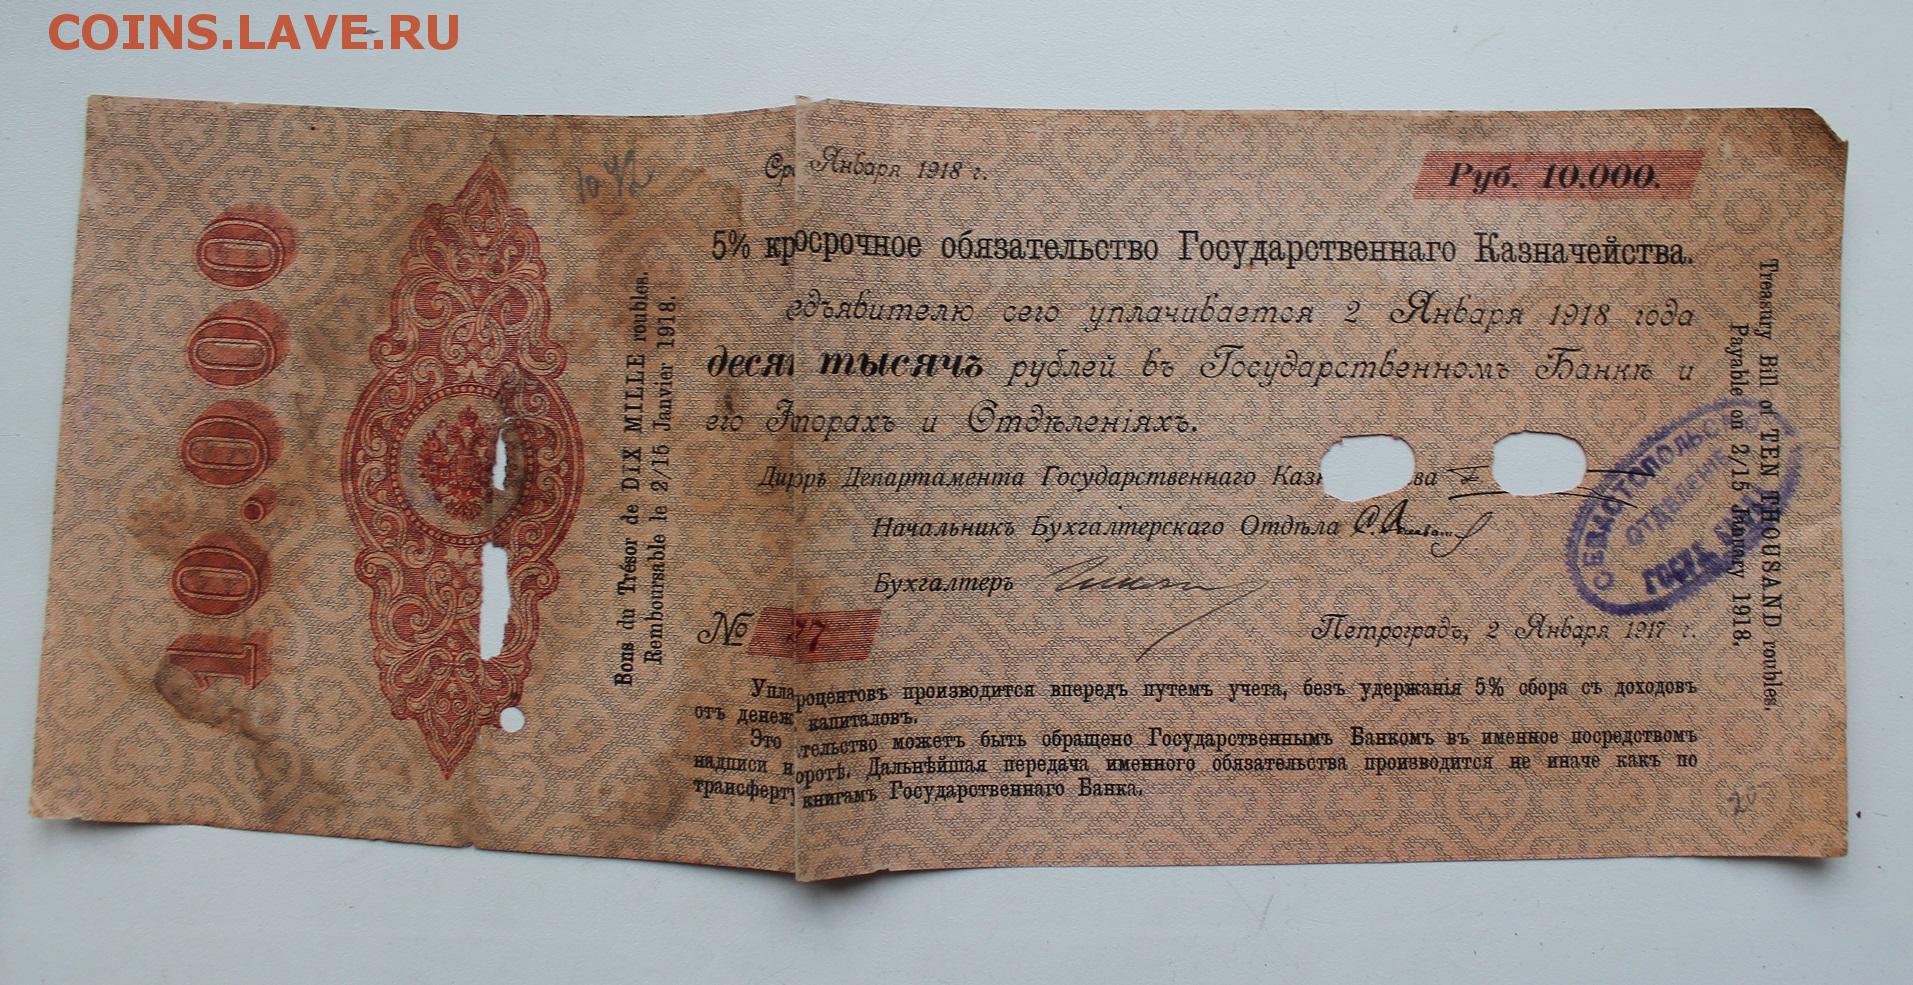 COINS.LAVE.RU
10.000
1042
Bons du Trésor de DIX MILLE roubles.
Remboursable le 2/15 Janvier 1918.
Января 1918 г.
Руб. 10.000.
5% кросрочное обязательство Государственнаго Казначейства.
едъявителю сего уплачивается 2 Января 1918 года
десят тысячъ рублей въ Государственномъ Банкѣ и
его торахъ и Отдѣленіяхъ.
Департамента Государственнаго Каз ва
Начальникъ Бухгалтерскаго Отдѣла
Бухгалтеръ
№ 77
Петроградъ, 2 Января 1917 г.
Упла роцентовъ производится впередъ путемъ учета, безъ удержанія 5% сбора съ доходовъ
отъ денеж капиталовъ.
Это тельство можетъ быть обращено Государственнымъ Банкомъ въ именное посредствомъ
надписи н оротѣ. Дальнѣйшая передача именного обязательства производится не иначе какъ по
трансферт книгамъ Государственнаго Банка.
Treasury Bill of TEN THOUSAND roubles.
Payable on 2/15 January 1918.
СЕВАСТОПОЛЬСКО
ОТДЕЛЕНИЕ
20